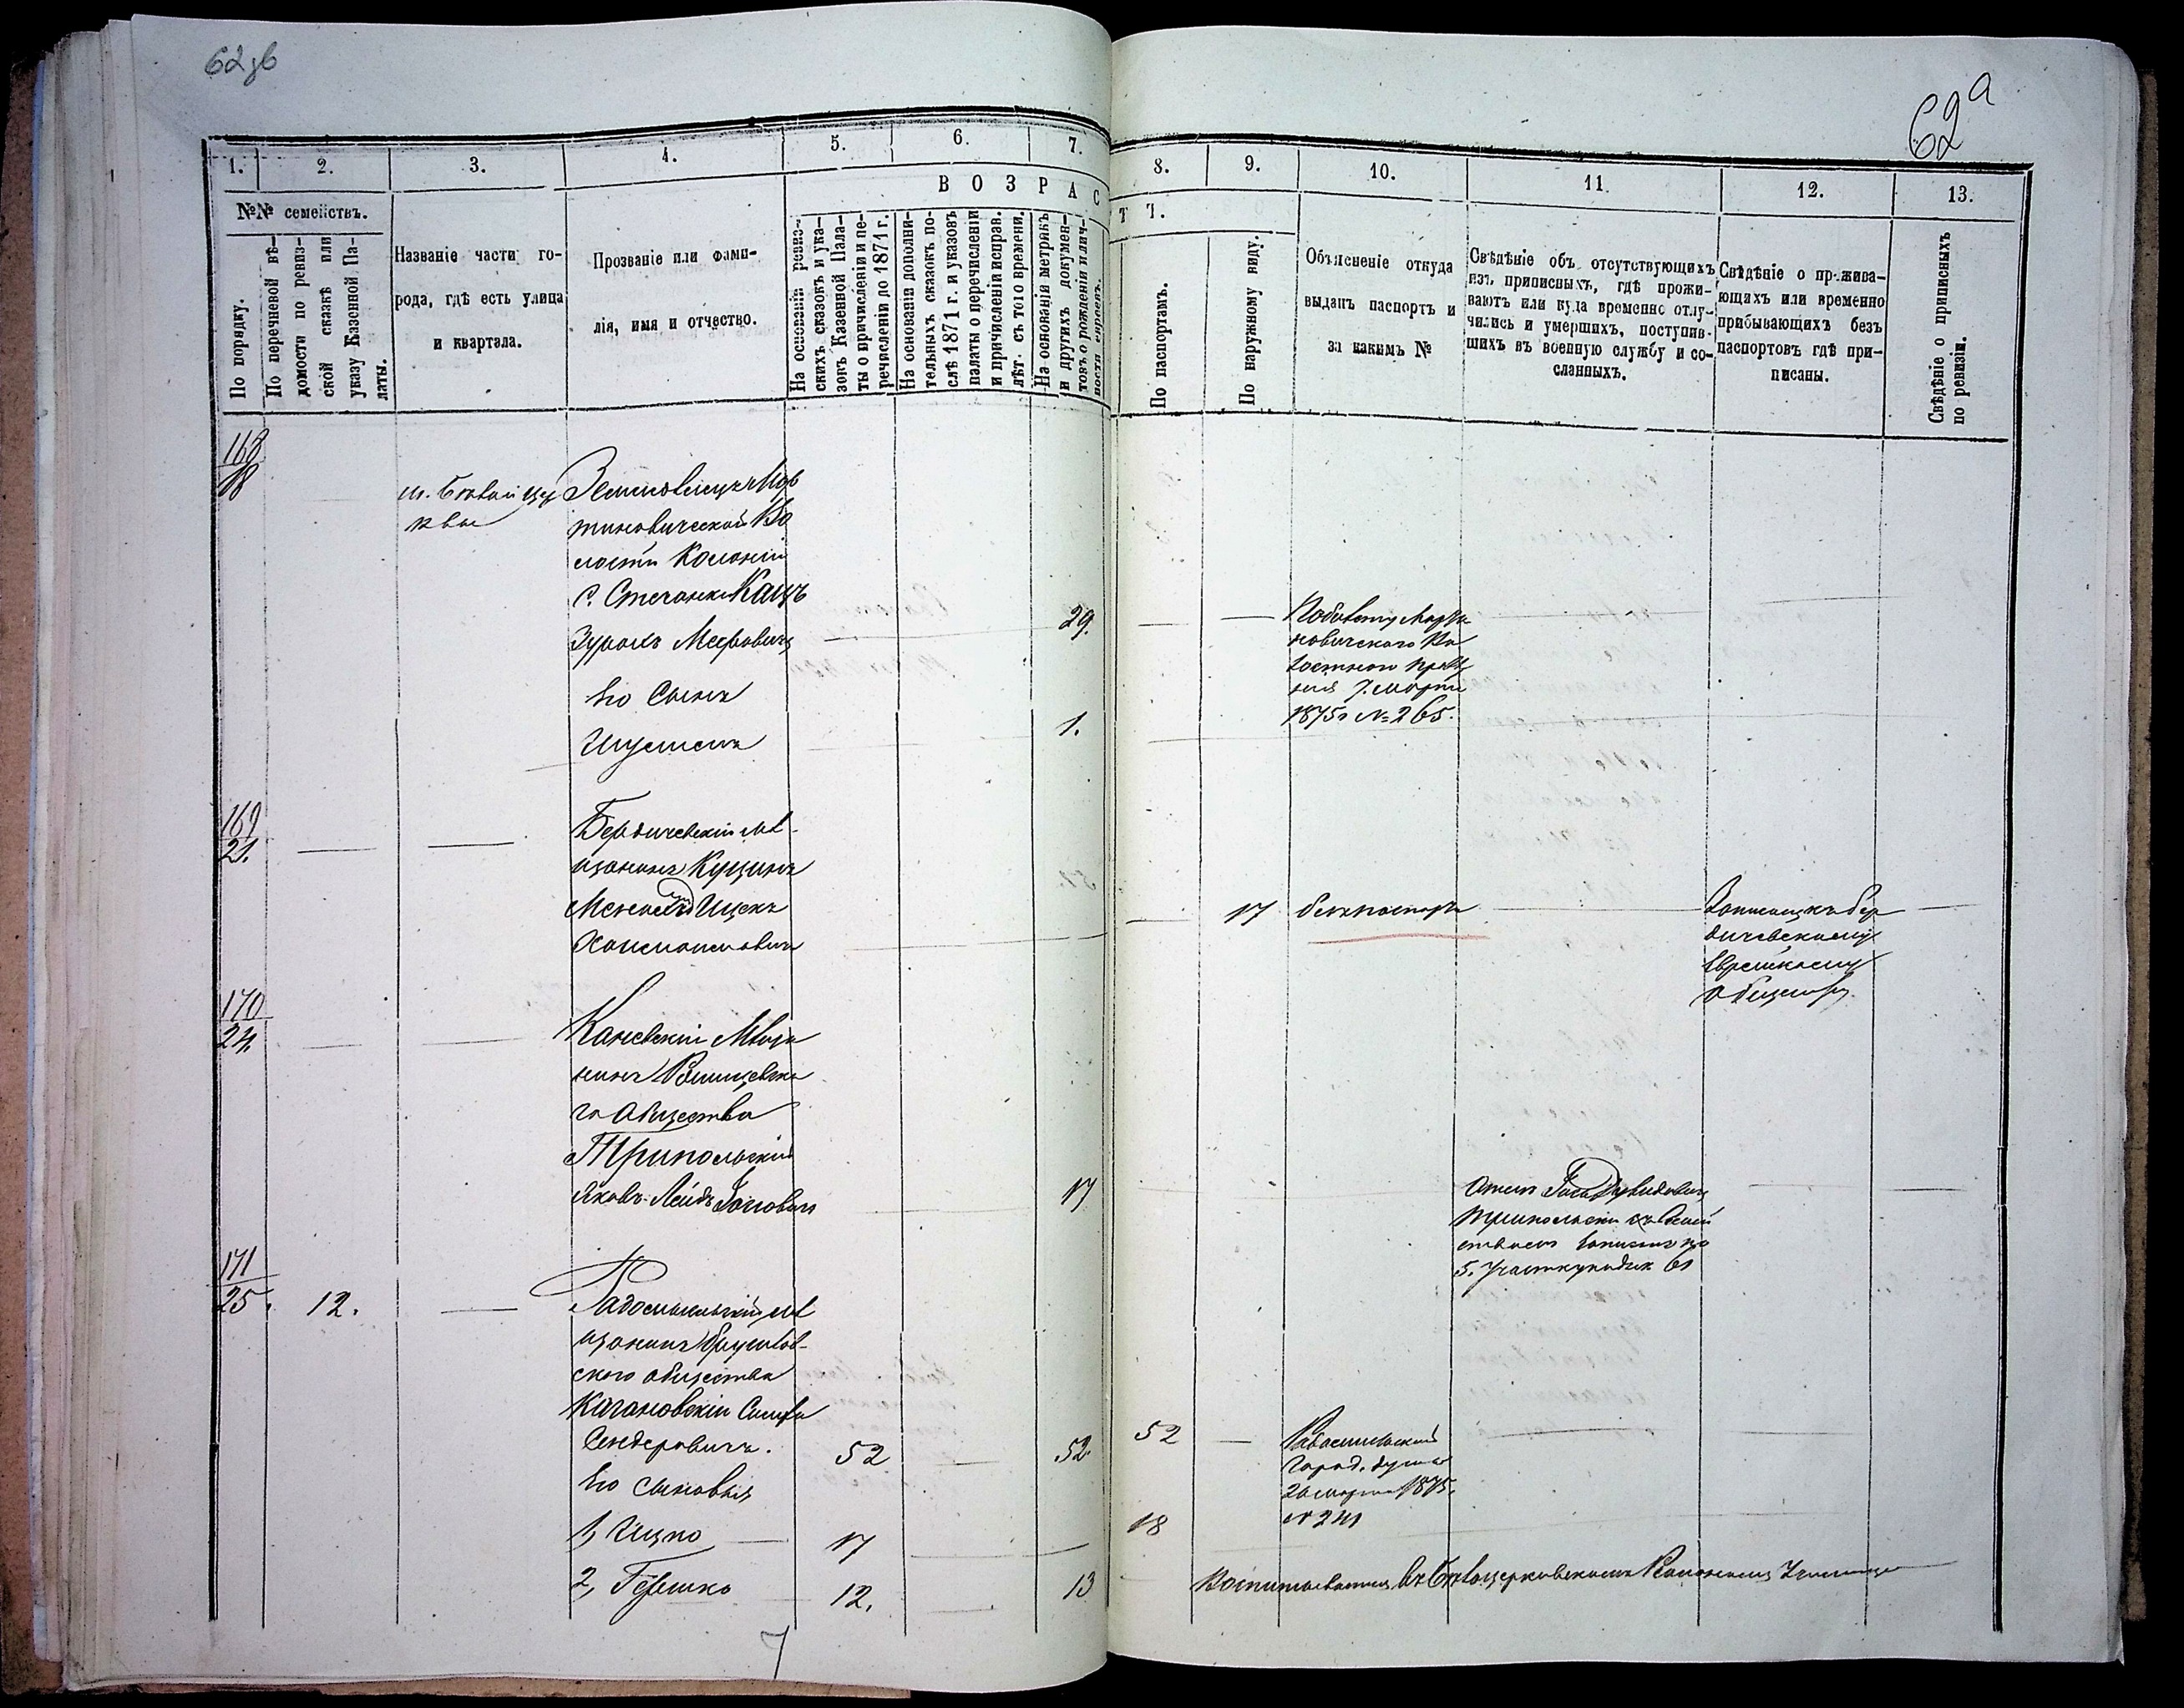 62зв
62а
1.
2.
3.
4.
5.
6.
7.
8.
9.
10.
11.
12.
13.
ВОЗРАСТ Ъ.
№№ семействъ.
По порядку.
По перечневой вѣ-
домости по ревиз-
ской сказкѣ или
указу Казенной Па-
латы.
Названіе части го-
рода, гдѣ есть улица
и квартала.
Прозваніе или фами-
лія, имя и отчество.
На основаніи ревиз-
скихъ сказокъ и ука-
зовъ Казенной Пала-
ты о причисленіи и пе-
речисленіи до 1871 г.
На основаніи дополни-
тельныхъ сказокъ по-
слѣ 1871 г. и указовъ
палаты о перечисленіи
и причисленіи исправ.
лѣт. съ того времени.
На основаніи метрикъ
и другихъ докумен-
товъ о рожденіи и лич-
ности евреевъ.
По паспортамъ.
По наружному виду.
Объясненіе откуда
выданъ паспортъ и
за какимъ №
Свѣдѣніе объ отсутствующихъ
изъ приписныхъ, гдѣ прожи-
ваютъ или куда временно отлу-
чились и умершихъ, поступив-
шихъ въ военную службу и со-
сланныхъ.
Свѣдѣніе о прожива-
ющихъ или временно
прибывающихъ безъ
паспортовъ гдѣ при-
писаны.
Свѣдѣніе о приписныхъ
по ревизіи.
168
18
м. Бѣлой Цер
квы
Во
лости Колоніи
с. Стечанки Кацъ
Зурохъ Меєровичъ
29.
Его Сынъ
1.
Мар
новическаго Во
лостнаго Прав
нія 7. марта
1875 г №265.
169
21.
Бердичевскій мѣ-
щанинъ Кущинъ
Ицекъ
17
безъ паспорта
Записанъ къ Бер
дичевскому
Еврейскому
Обществу.
170
24.
Каневскій Мѣща
нинъ
го Общества
Трипольскій
Яковъ-Лейбъ
17
Отецъ Давидовичъ
Трипольскій съ Семей
ствомъ записанъ по
5. Участку подъ № 61
171
25.
12.
Радомысльскій мѣ
щанинъ Брусилов-
ского общества
Кагановскій Симха
Сендеровичъ.
52
52.
52
Радомысльской
Город. думы
26 марта 1875.
№ 241
Его сыновья
1, Ицко
17
18
2, Гершко
12.
13
Воспитывается въ Бѣлоцерковскомъ Казенномъ Училищѣ